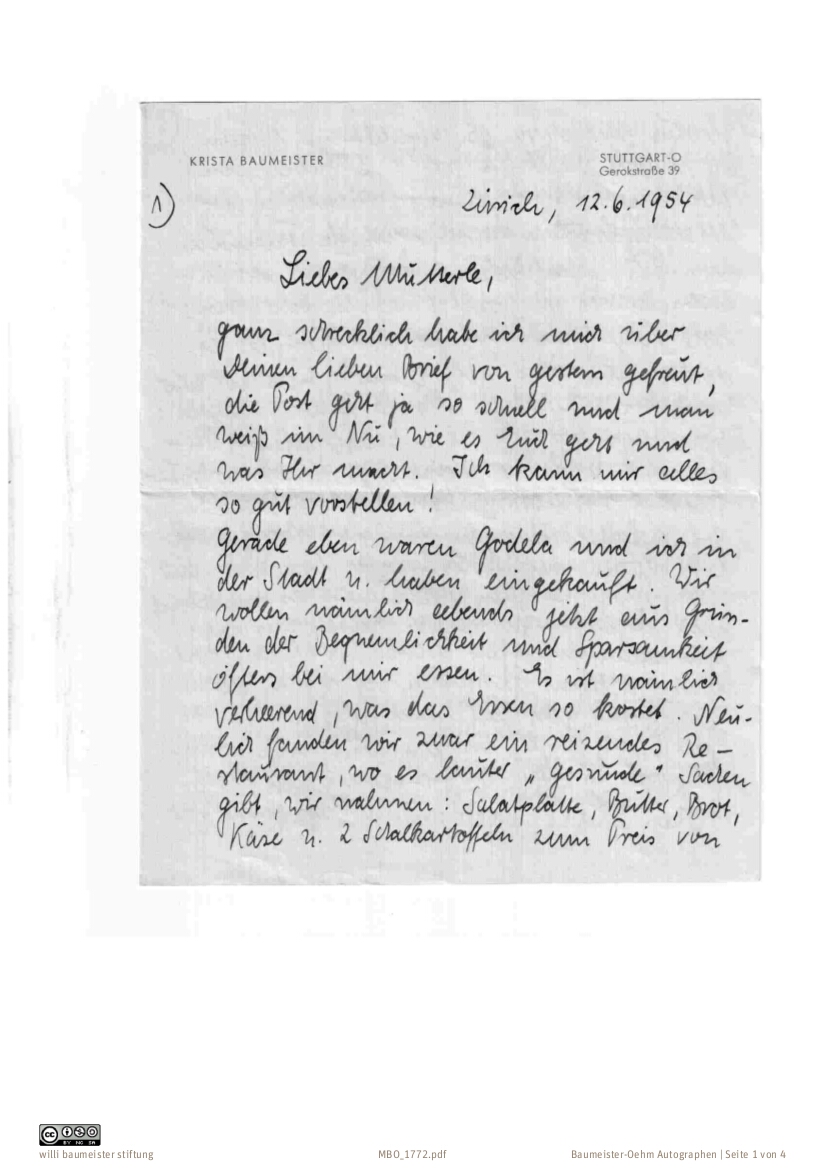 KRISTA BAUMEISTER
STUTTGART-O
Gerokstraße 39
1)
Zürich, 12.6.1954
Liebes Mutterle,
ganz schrecklich habe ich mich über
Deinen lieben Brief von gestern gefreut,
die Post geht ja so schnell und man
weiß im Nu, wie es Euch geht und
was Ihr macht. Ich kann mir alles
so gut vorstellen!
Gerade eben waren Godela und ich in
der Stadt u. haben eingekauft. Wir
wollen nämlich abends jetzt aus Grün-
den der Bequemlichkeit und Sparsamkeit
öfters bei mir essen. Es ist nämlich
verheerend, was das Essen so kostet. Neu-
lich fanden wir zwar ein reizendes Re-
staurant, wo es lauter „gesunde" Sachen
gibt, wir nahmen: Salatplatte, Butter, Brot,
Käse u. 2 Schalkartoffeln zum Preis von
CC BY NC SA
willi baumeister stiftung
MBO_1772.pdf
Baumeister-Oehm Autographen | Seite 1 von 4